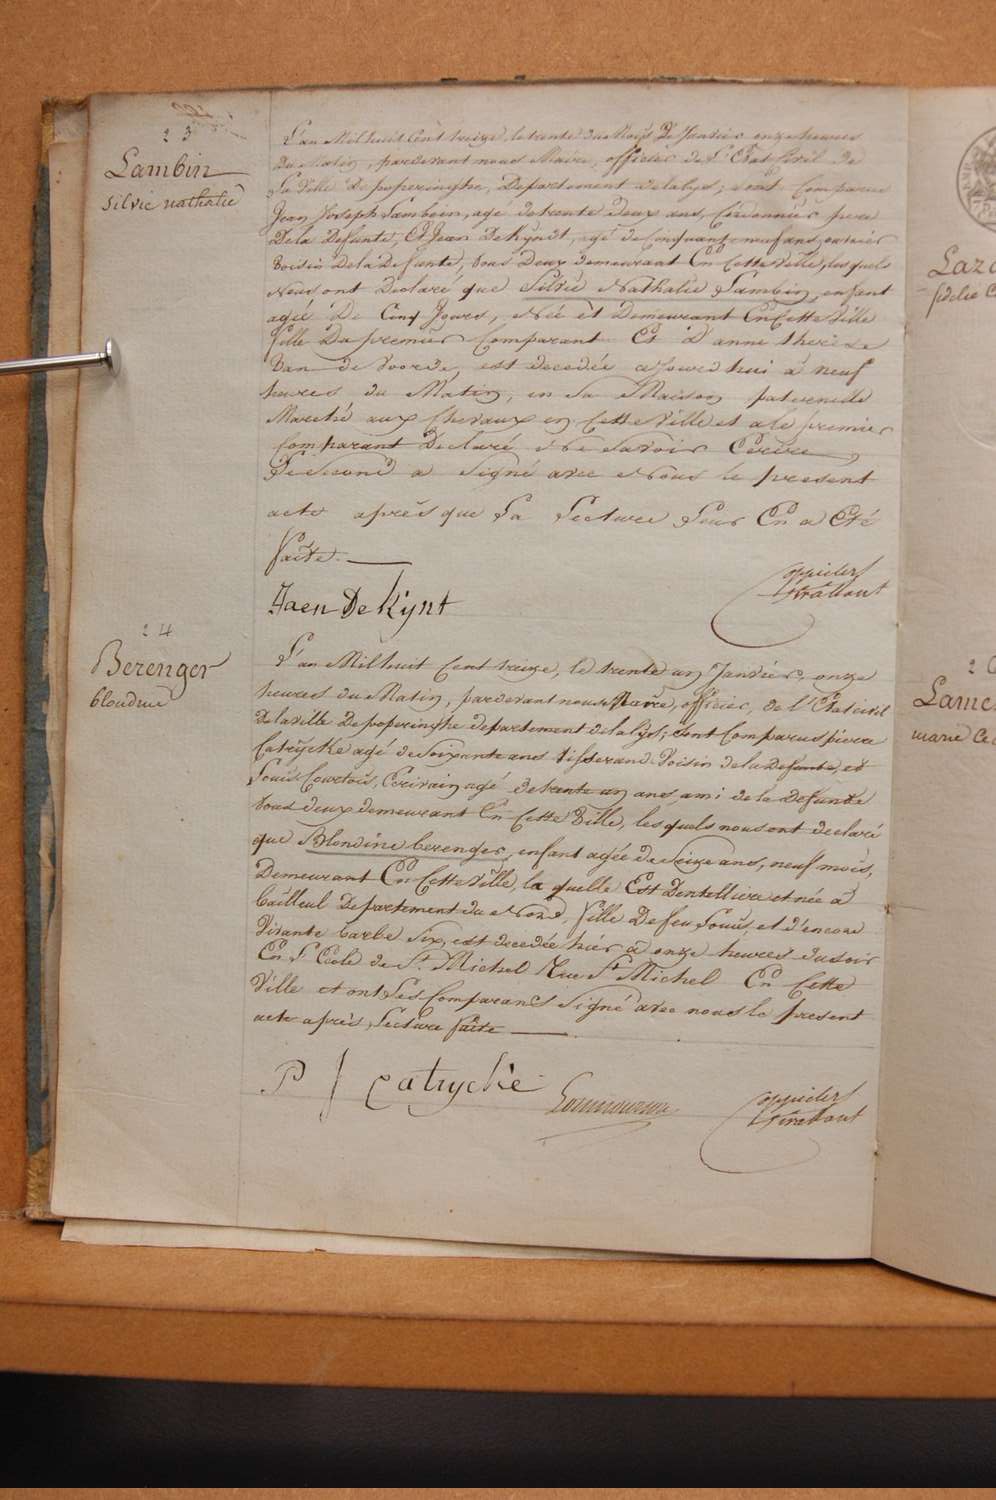 23
Lambin
silvie nathalie
L'an Mil huit Cent treize, le trente du Mois De Janvier onze heures
du Matin, pardevant nous Maire, officier de L'Etat Civil de
La Ville De poperinghe, Departement de la lys; sont Comparus
Jean Joseph Lambin, agé de trente deux ans, Cordonnier pere
De la Defunte, Et Jean DeKyndt, agé de Cinquante neuf ans, ouvrier
Voisin De la Defunte, tous Deux demeurant En Cette Ville, les quels
Nous ont Declaré que Silvie Nathalie Lambin, enfant
agée De Cinq Jours, Née et Demeurant En Cette Ville
fille Du premier Comparant Et D'anne therese
Van de Voorde, est decedée aujourd'hui à neuf
heures du Matin, en sa Maison paternelle
Marché aux Chevaux en Cette Ville et a le premier
Comparant Declaré Ne Savoir Ecrire,
Le Second a Signé avec Nous le present
acte après que La Lecture Leur En a Eté
faite.
Jaen De Kÿnt
24
Berenger
blondine
L'an Mil huit Cent treize, le trente un Janvier, onze
heures du Matin, pardevant nous Maire, officier, de l'Etat civil
De la ville De poperinghe departement de la lys; sont Comparus pierre
Catrÿcke agé de Soixante ans tisserand Voisin de la Defunte, et
Louis Courtois, Ecrivain agé de trente un ans, ami de la Defunte
tous deux demeurant En Cette Ville, les quels nous ont declaré
que Blondine berenger, enfant agée de Seize ans, neuf mois,
Demeurant En Cette Ville, la quelle Est Dentelliere et née à
bailleul Departement du Nord, fille De feu Louis, et d'encore
Vivante barbe Six, est decedée hier à onze heures du soir
En L'Ecole de St. Michel Rue St Michel En Cette
Ville et ont Les Comparans Signé avec nous le present
acte après Lecture faite
P J Catrycke
Laz
fidelie C
Lame
marie Ce